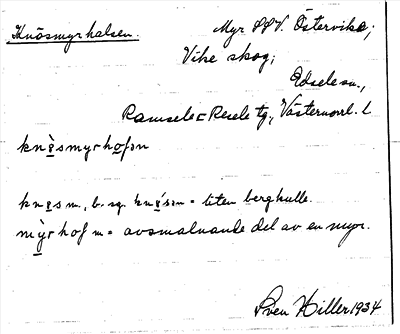 Knösmyrhalsen.
Myr SSV. Östervike,
Vike skog,
Edsele sn.,
Ramsele o Resele tg, Västernorrl. l
knö̀smyrhaḷsn
knøs m., b. sg. knø̀sn = liten bergkulle.
mỳrhaḷs m = avsmalnande del av en myr.
Sven Hiller 1934